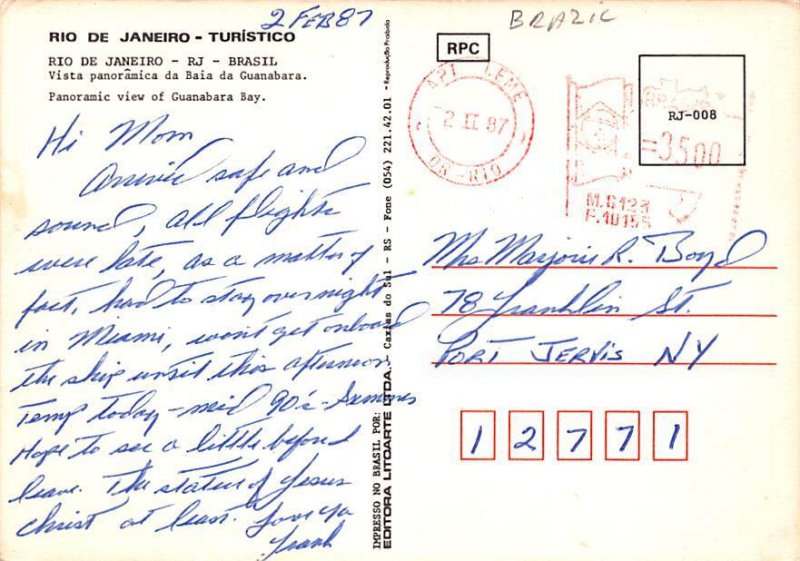 2 FEB 87
BRAZIL
RIO DE JANEIRO - TURÍSTICO
RIO DE JANEIRO - RJ - BRASIL
Vista panorâmica da Baia da Guanabara.
Panoramic view of Guanabara Bay.
Hi Mom
Arrived safe and
sound, all flights
were late, as a matter of
fact, had to stay overnight
in Miami, won't get onboard
the ship until this afternoon
Temp today - mid 90's - Summer
Hope to see a little before I
leave. The statue of Jesus
Christ at least. Love ya
Frank
IMPRESSO NO BRASIL POR:
EDITORA LITOARTE LTDA. - Caxias do Sul - RS - Fone (054) 221.42.01 - Reprodução Proibida
RPC
LEME
2 II 87
RJ-008
=3500
M.6123
F.10155
Mrs Marjorie R. Boyd
78 Franklin St.
PORT JERVIS NY
1 2 7 7 1